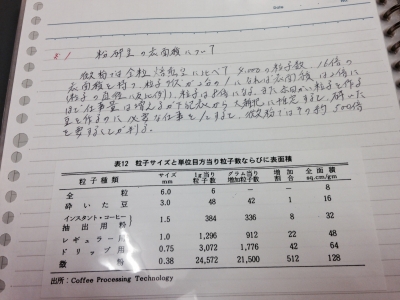 ※1 粉砕豆の表面積について
微粉では全粒焙煎豆に比べて 4,000の粒子数、16倍の
表面積を持つ。粒子サイズが2分の1になれば表面積は2倍に
(粒子の直径に反比例)、粒子は8倍になる。また細かい粒子を作る
ほど仕事量は増えるが下記表から大雑把に推定すると、砕いた
豆を作るのに必要な仕事を1とすると、微粉ではその約500倍
を要することが判る。
表12 粒子サイズと単位目方当り粒子数ならびに表面積
粒子種類 サイズ mm 1g当り粒子数 グラム当り増加粒子数 増加割合 全面積 sq.cm/gm
全粒 6.0 6 — — 8
砕いた豆 3.0 48 42 1 16
インスタント・コーヒー抽出用粉 1.5 384 336 8 32
レギュラー用 1.0 1,296 912 22 48
ドリップ用 0.75 3,072 1,776 42 64
微粉 0.38 24,572 21,500 512 128
出所:Coffee Processing Technology